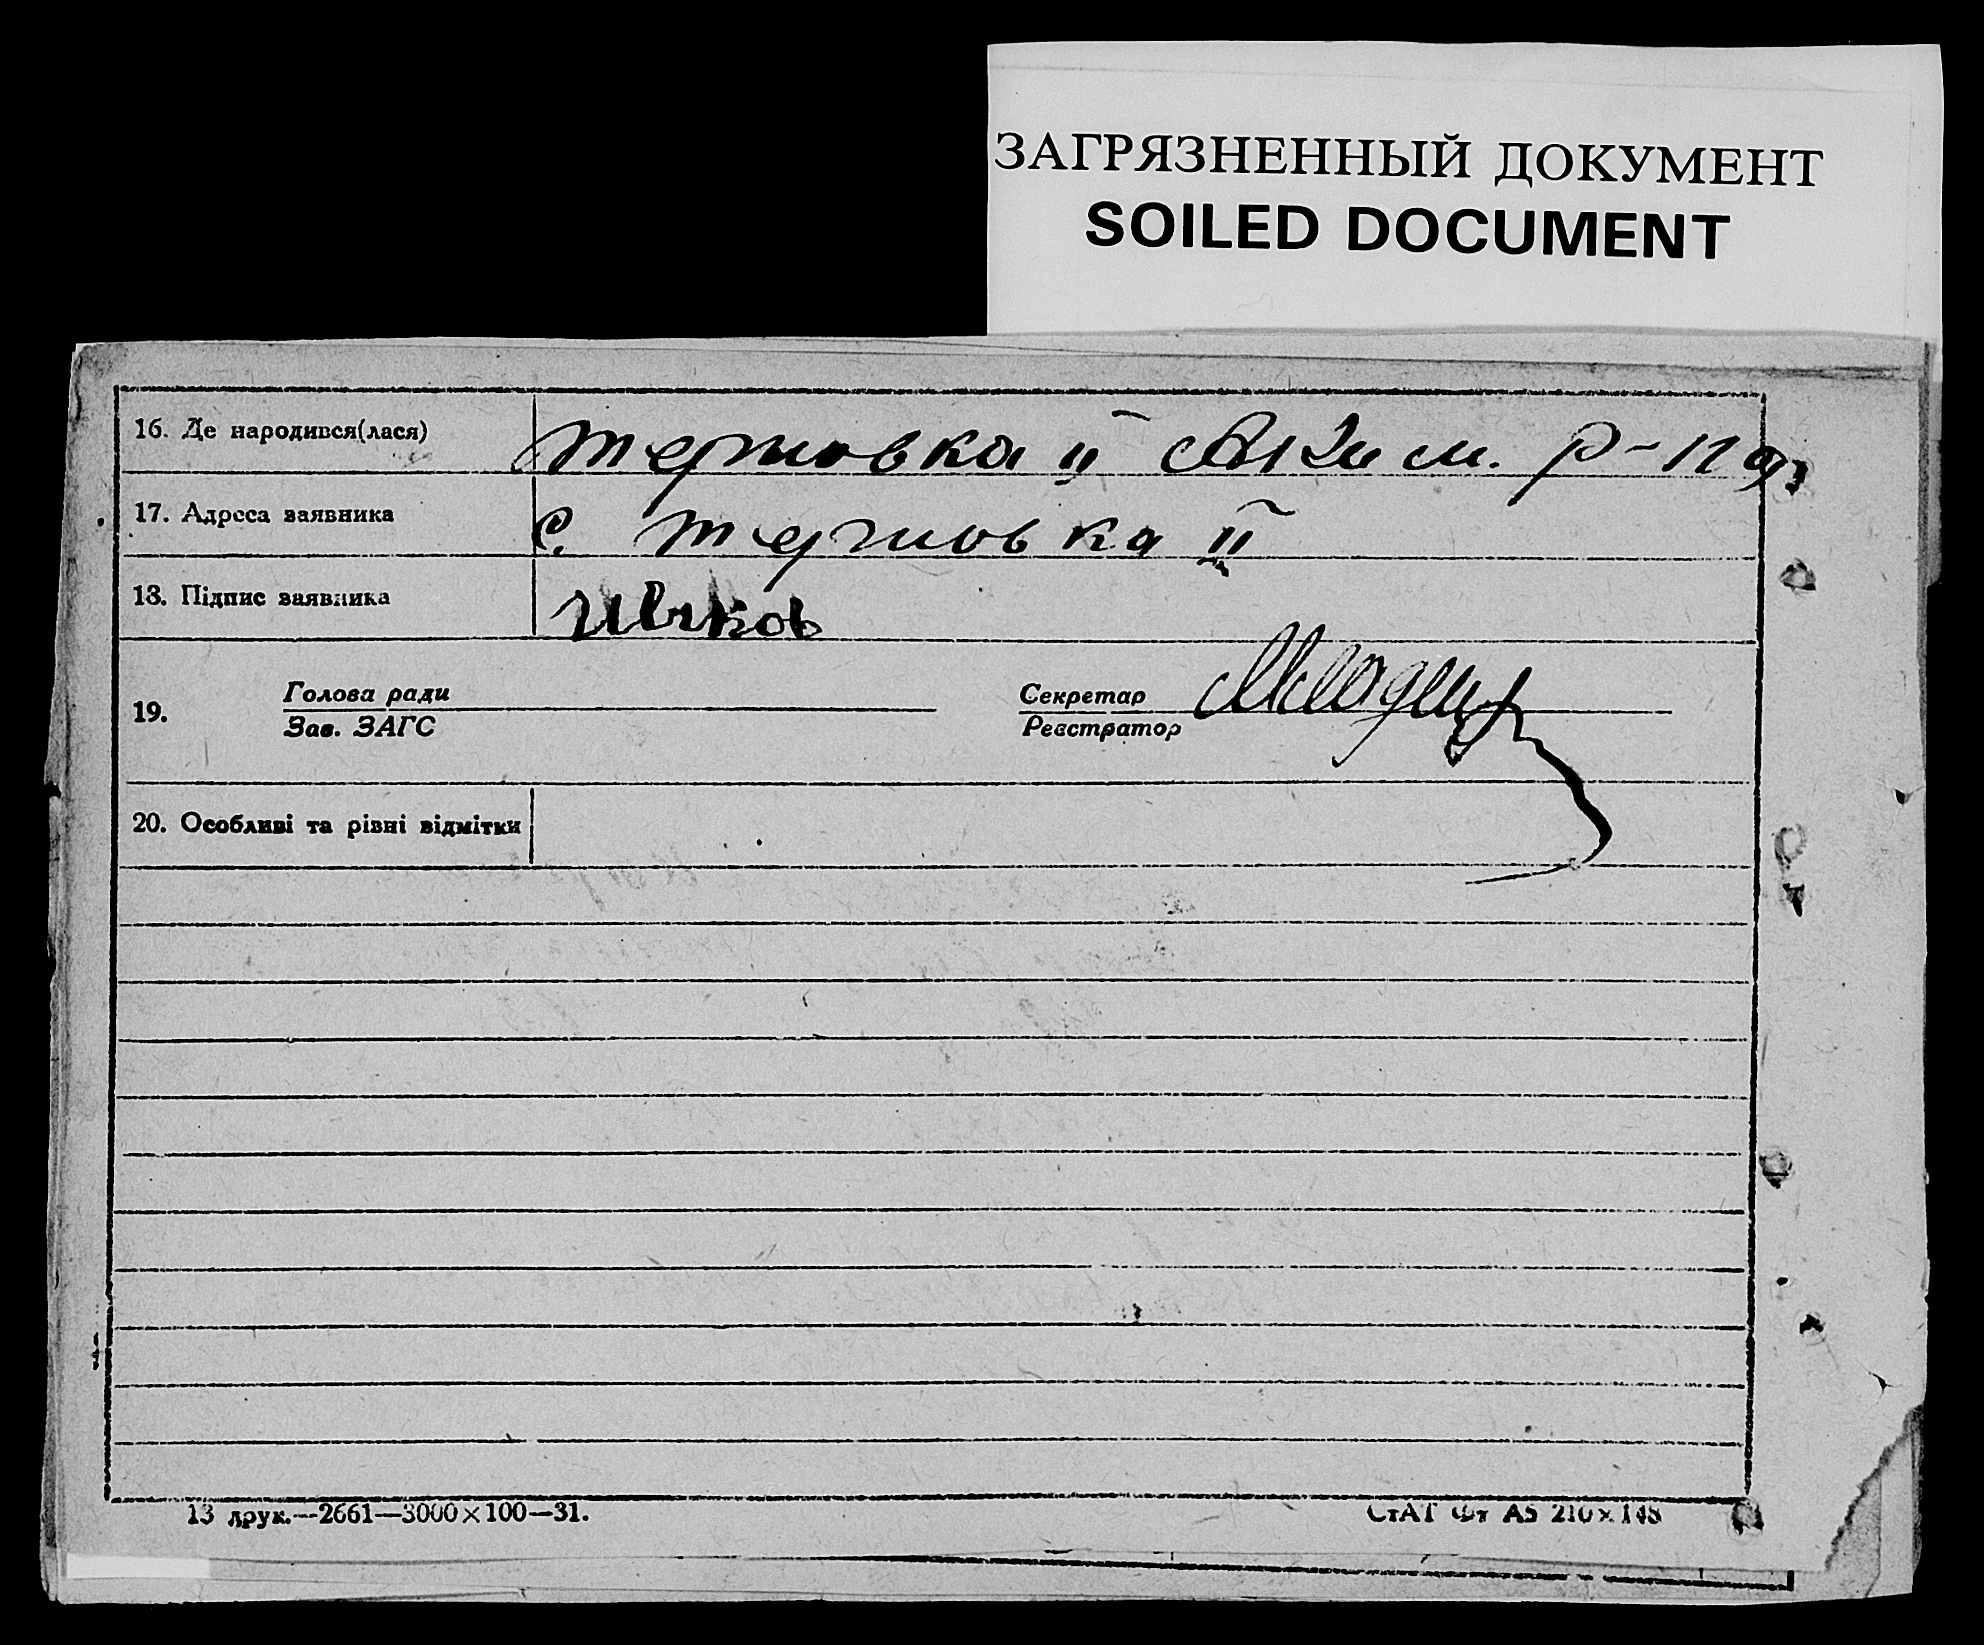 ЗАГРЯЗНЕННЫЙ ДОКУМЕНТ
SOILED DOCUMENT
16. Де народився(лася) Терновка II Аким. р-на
17. Адреса заявника с. Терновка II
18. Підпис заявника
19. Голова ради
Зав. ЗАГС
Секретар
Реєстратор
20. Особливі та різні відмітки
13 друк.—2661—3000×100—31.
СтАТ Фт А5 210×148